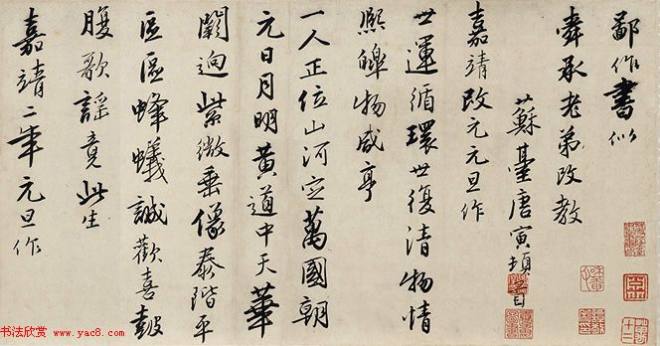 鄙作書似
舜承老弟改教
蘇臺唐寅頓首
嘉靖改元元旦作
世運循環世復清物情
熙皡物咸亨
一人正位山河定萬國朝
元日月明黃道中天華
闕迥紫微垂像泰階平
區區蜂蟻誠歡喜皷
腹歌謠竟此生
嘉靖二年元旦作
书法欣赏
www.yac8.com